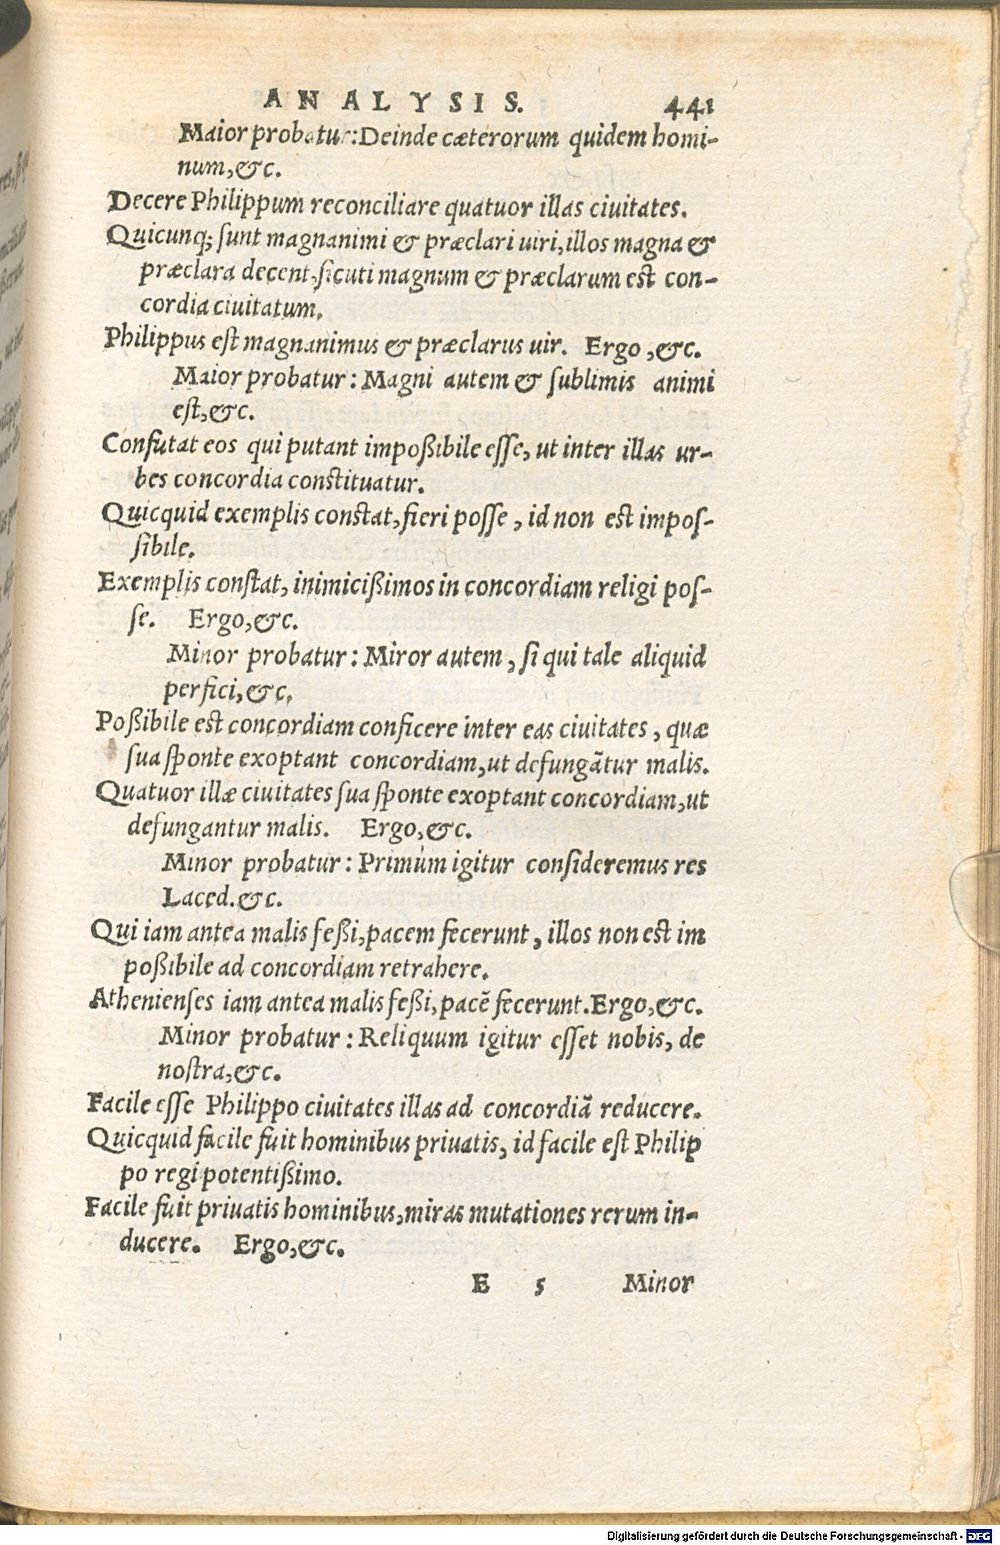 ANALYSIS. 441
Maior probatur: Deinde cæterorum quidem homi-
num, &c.
Decere Philippum reconciliare quatuor illas ciuitates.
Quicunq; sunt magnanimi & præclari uiri, illos magna &
præclara decent, sicuti magnum & præclarum est con-
cordia ciuitatum.
Philippus est magnanimus & præclarus uir. Ergo, &c.
Maior probatur: Magni autem & sublimis animi
est, &c.
Confutat eos qui putant impoßibile esse, ut inter illas ur-
bes concordia constituatur.
Quicquid exemplis constat, fieri posse, id non est impos-
sibile.
Exemplis constat, inimicißimos in concordiam religi pos-
se. Ergo, &c.
Minor probatur: Miror autem, si qui tale aliquid
perfici, &c.
Poßibile est concordiam conficere inter eas ciuitates, quæ
sua sponte exoptant concordiam, ut defungãtur malis.
Quatuor illæ ciuitates sua sponte exoptant concordiam, ut
defungantur malis. Ergo, &c.
Minor probatur: Primùm igitur consideremus res
Laced. &c.
Qui iam antea malis feßi, pacem fecerunt, illos non est im
poßibile ad concordiam retrahere.
Athenienses iam antea malis feßi, pacẽ fecerunt. Ergo, &c.
Minor probatur: Reliquum igitur esset nobis, de
nostra, &c.
Facile esse Philippo ciuitates illas ad concordiã reducere.
Quicquid facile fuit hominibus priuatis, id facile est Philip
po regi potentißimo.
Facile fuit priuatis hominibus, miras mutationes rerum in-
ducere. Ergo, &c.
E 5 Minor
Digitalisierung gefördert durch die Deutsche Forschungsgemeinschaft - DFG